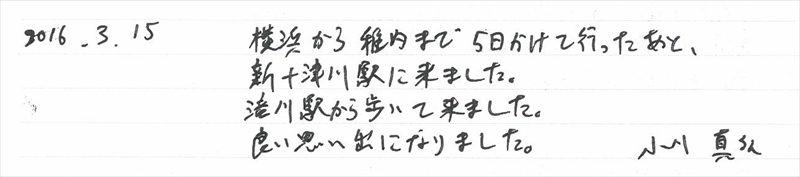 2016.3.15 横浜から稚内まで5日かけて行ったあと、
新十津川駅に来ました。
滝川駅から歩いて来ました。
良い思い出になりました。 小川 真